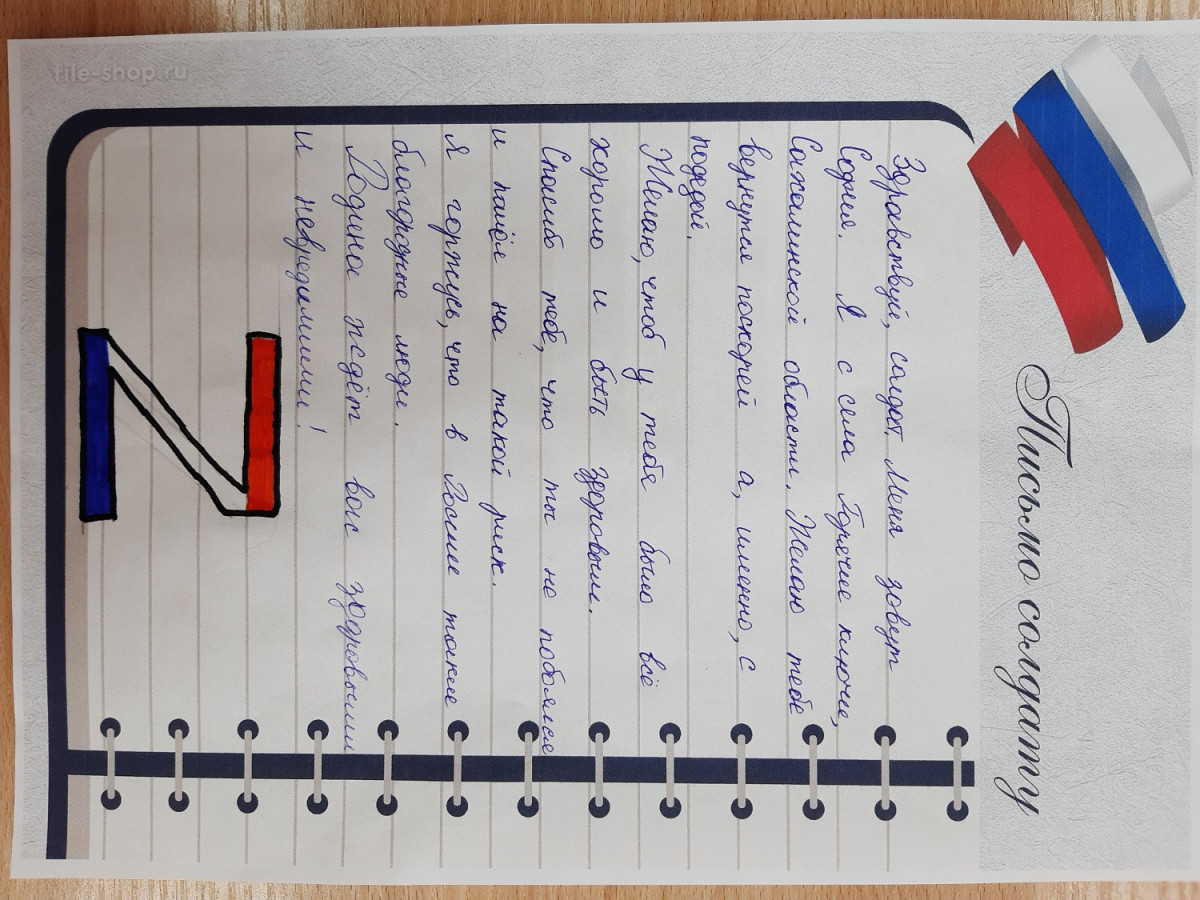 file-shop.ru
Письмо солдату
Здравствуй, солдат. Меня зовут
София. Я с села Горячие ключи,
Сахалинской области. Желаю тебе
вернутся поскорей а, именно, с
победой.
Желаю, чтоб у тебя было всё
хорошо и быть здоровым.
Спасибо тебе, что ты не побоялся
и пошёл на такой риск.
Я горжусь, что в России такие
благородные люди.
Родина ждёт вас здоровыми
и невредимыми!
Z